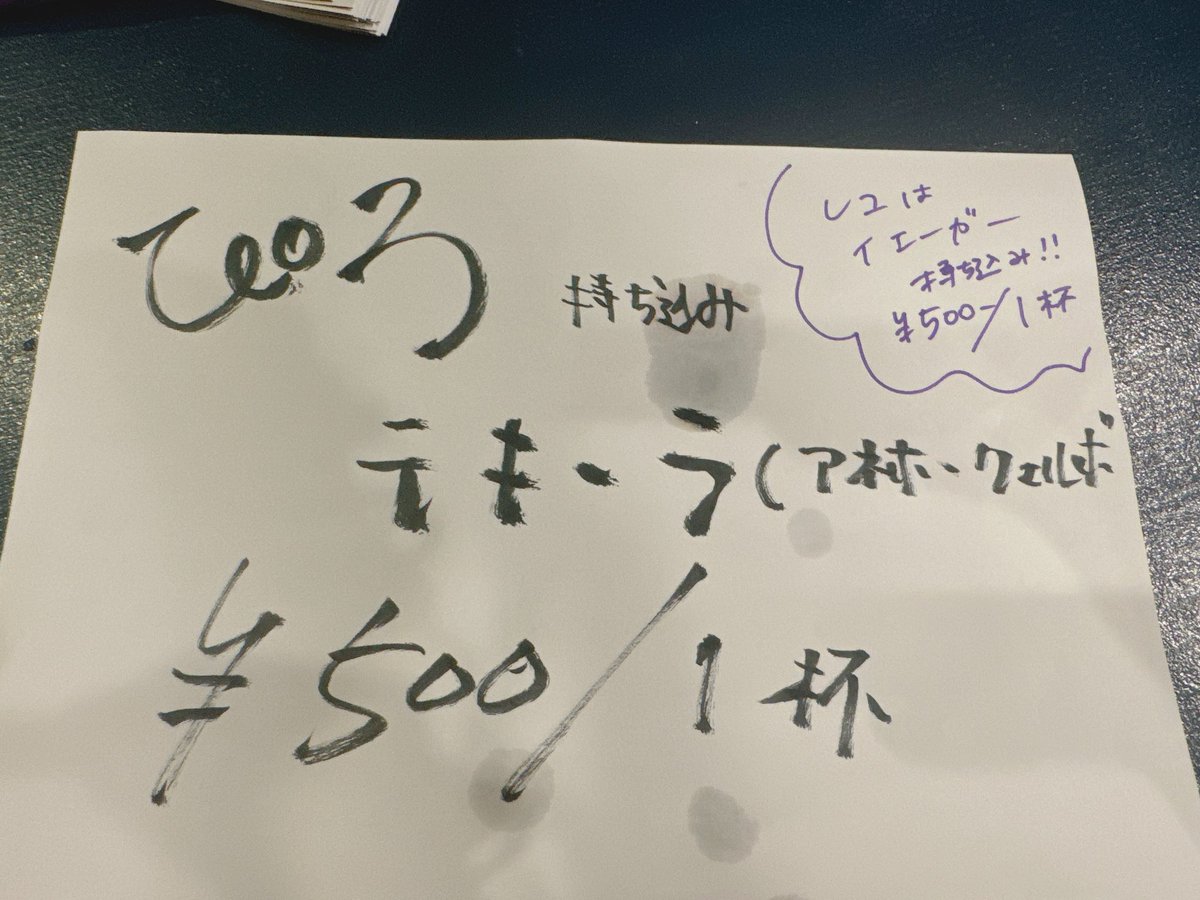 ぴろ
持ち込み
テキーラ(アネホ・クエルボ
¥500/1杯
レユは
イエーガー
持ち込み!!
¥500-/1杯